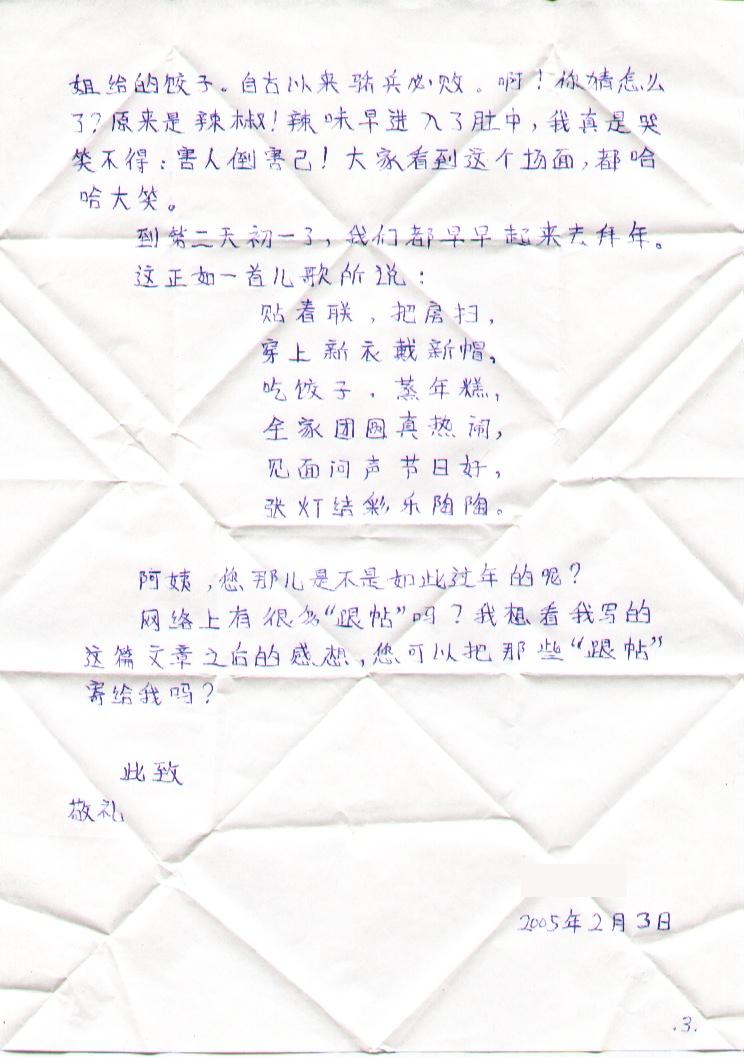 姐给的饺子。自古以来骄兵必败。啊！你猜怎么
了？原来是辣椒！辣味早进入了肚中，我真是哭
笑不得：害人倒害己！大家看到这个场面，都哈
哈大笑。
到第二天初一了，我们都早早起来去拜年。
这正如一首儿歌所说：
贴春联，把房扫，
穿上新衣戴新帽，
吃饺子，蒸年糕，
全家团圆真热闹，
见面问声节日好，
张灯结彩乐陶陶。
阿姨，您那儿是不是如此过年的呢？
网络上有很多“跟帖”吗？我想看我写的
这篇文章之后的感想，您可以把那些“跟帖”
寄给我吗？
此致
敬礼
2005年2月3日
.3.